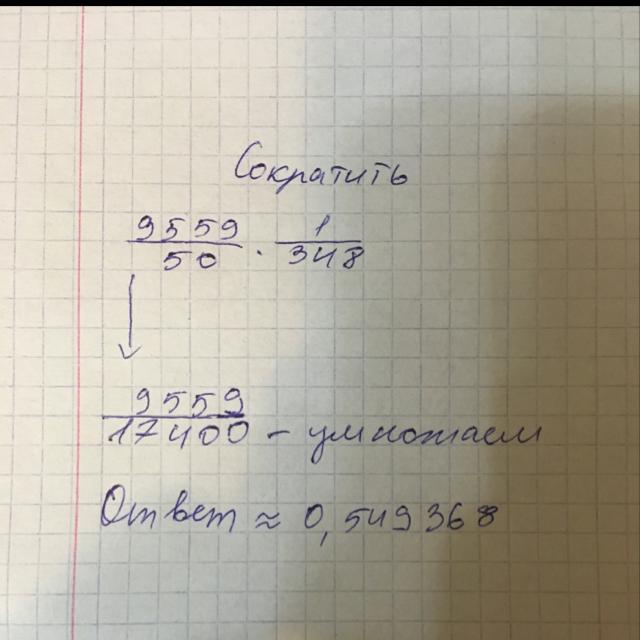 Сократить
9559 1
50 · 348
9559
17400 - умножаем
Ответ ≈ 0,549368